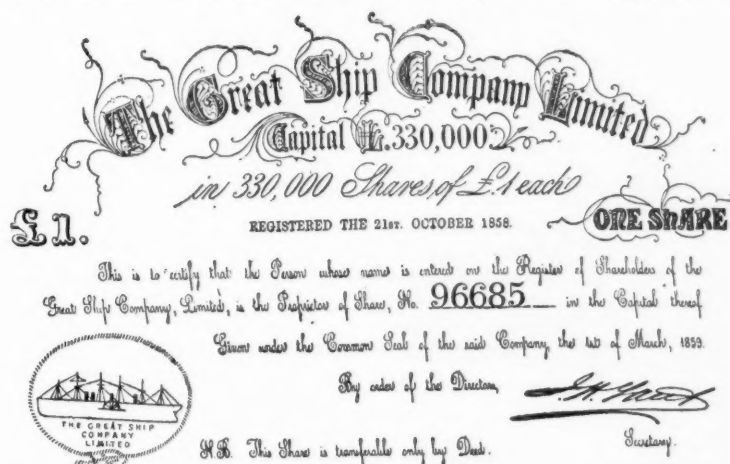 The Great Ship Company Limited
Capital £.330,000.
in 330,000 Shares, of £.1 each
REGISTERED THE 21ST. OCTOBER 1858.
£1.
ONE SHARE
This is to certify that the Person whose name is entered on the Register of Shareholders of the
Great Ship Company, Limited, is the Proprietor of Share, No. 96685 in the Capital thereof
Given under the Common Seal of the said Company, the 1st of March, 1859.
By order of the Directors,
THE GREAT SHIP
COMPANY
LIMITED
N.B. This Share is transferable only by Deed.
Secretary.